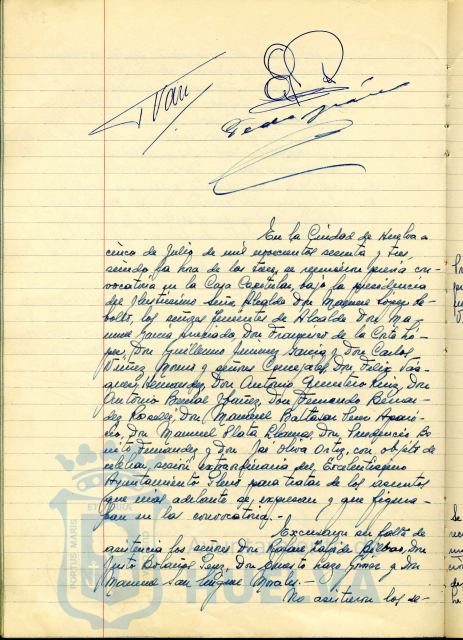 En la Ciudad de Huelva a
cinco de Julio de mil novecientos sesenta y tres,
siendo la hora de las trece, se reunieron previa con-
vocatoria en la Casa Capitular, bajo la presidencia
del Ilustrísimo Señor Alcalde Don Manuel López Re-
bollo, los señores Tenientes de Alcalde Don Ma-
nuel García Don Francisco de la Corte Ló-
pez, Don Guillermo Jimenez García y Don Carlos
Núñez Moreno y señores Concejales Don Felix Váz-
quez Hernandez, Don Antonio Quintero Ruiz, Don
Antonio Bernal Ybañez, Don Fernando Bernar-
dez Don Manuel Baltasar Seur Apari-
cio, Don Manuel Plata Llamas, Don Prudencio Bo-
nito Fernandez y Don José Oliva Ortiz, con objeto de
celebrar sesión extraordinaria del Excelentísimo
Ayuntamiento Pleno para tratar de los asuntos
que más adelante se expresan y que figura-
ban en la convocatoria.-
Excusaron su falta de
asistencia los señores Don Rafael Lozada Bilbao, Don
Justo Bolaños Perez, Don Ernesto Lazo Gomez y Don
Manuel San Miguel Morales.-
No asistieron los se-
PORTUS MARIS
HUELVA